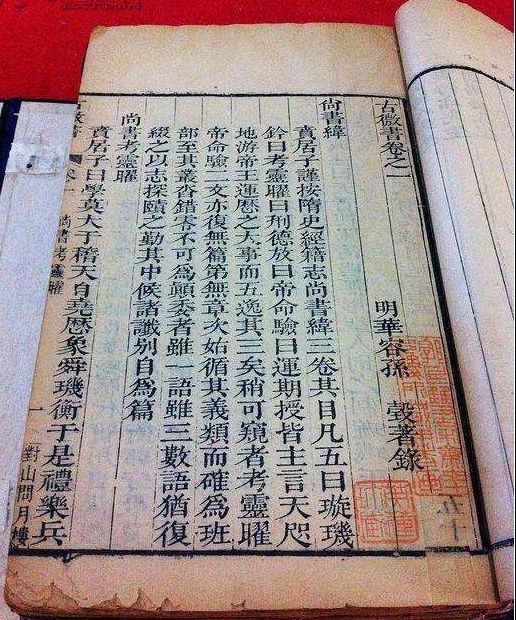 古微書卷之一
明華容孫 瑴著錄
尚書緯
賁居子謹按隋史經籍志尚書緯三卷其目凡五曰璇璣
鈐曰考靈曜曰刑德放曰帝命驗曰運期授皆主言天咫
地游帝王運歷之大事而五逸其三矣稍可窺者考靈曜
帝命驗二文亦復無篇第無章次始循其義類而確為班
部至其叢杳錯零不可為顛委者雖一語雖三數語猶復
綴之以志探賾之勤其中候諸讖別自為篇
尚書考靈曜
賁居子曰學莫大于稽天自堯歷象舜璣衡于是禮樂兵
古微書 卷一
尚書考靈曜
一
對山問月樓